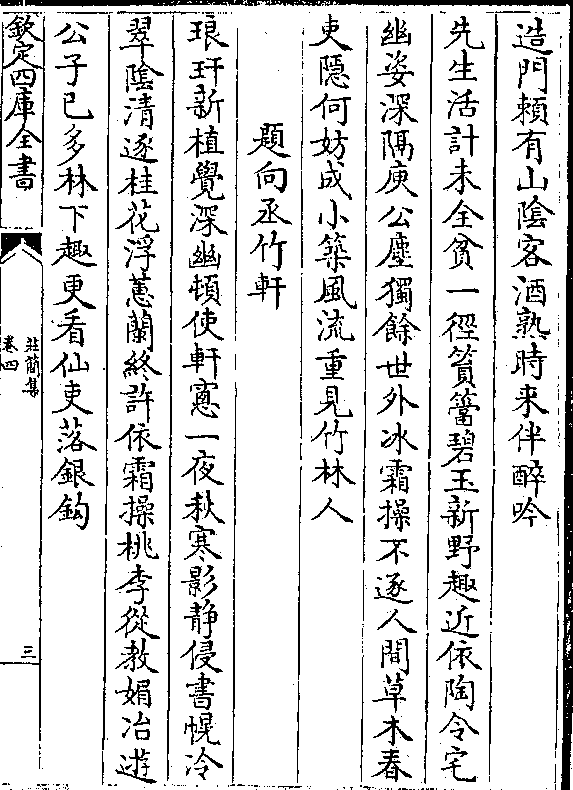 造門頼有山陰客酒熟時来伴醉吟
先生活計未全貧一徑篔簹碧玉新野趣近依陶令宅
幽姿深隔庾公塵獨餘世外冰霜操不逐人間草木春
吏隱何妨成小築風流重見竹林人
題向丞竹軒
琅玕新植覺深幽頓使軒窻一夜秋寒影静侵書幌冷
翠陰清逐桂花浮蕙蘭終許依霜操桃李從教媚冶遊
公子已多林下趣更看仙吏落銀鈎
欽定四庫全書
莊簡集
卷四
三